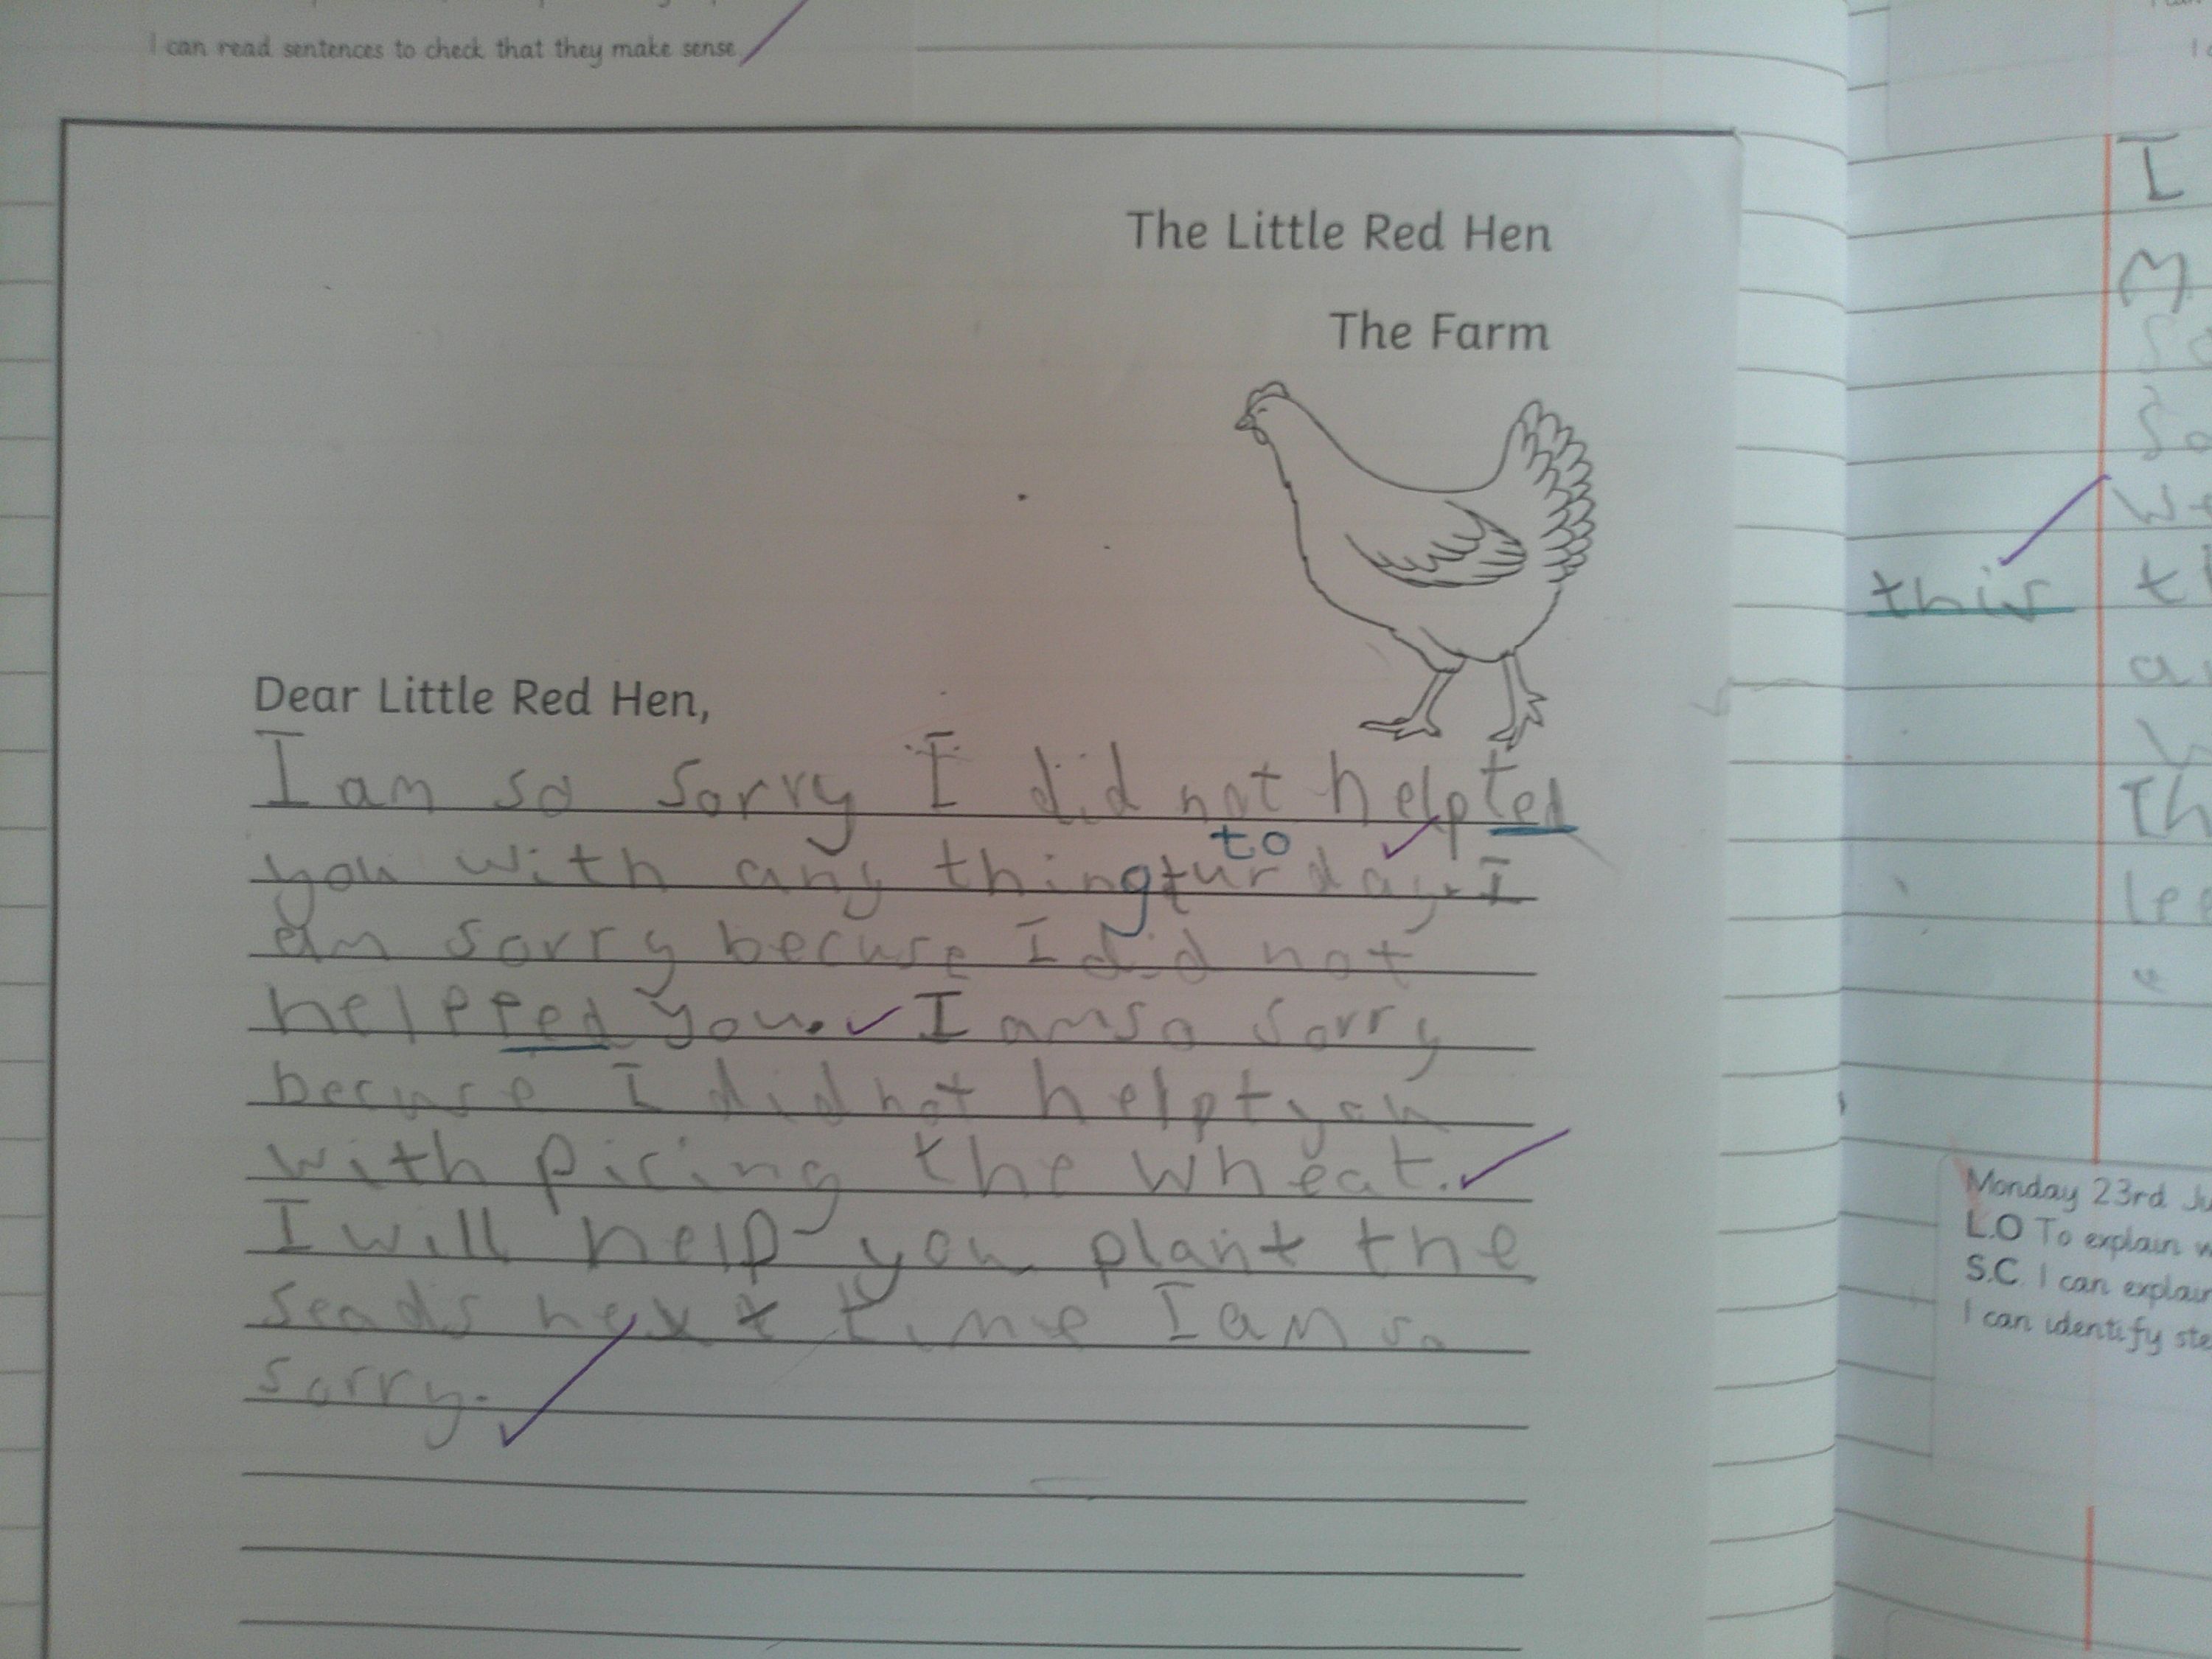 I can read sentences to check that they make sense
The Little Red Hen
The Farm
Dear Little Red Hen,
I am so sorry I did not helpted
to
you with any thing tur day. I
am sorry becuse I did not
helpeed you. I am so sorry
becuse I did not helpt you
with picing the wheat.
I will help you plant the
seads next time I am so
sorry.
this
I
Th
Monday 23rd Ju
L.O To explain w
S.C. I can explain
I can identify ste